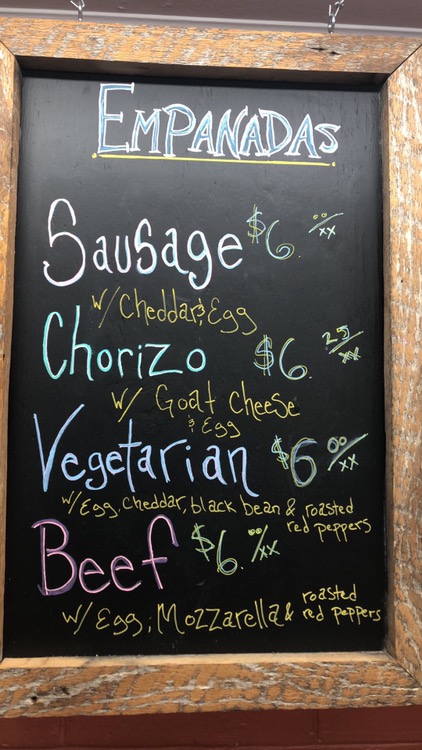 EMPANADAS
Sausage $6. 00/xx
w/ Cheddar & Egg
Chorizo $6. 25/xx
w/ Goat cheese
& Egg
Vegetarian $6 00/xx
w/ Egg, cheddar, black bean & roasted
red peppers
Beef $6. 00/xx
w/ Egg, Mozzarella & roasted
red peppers